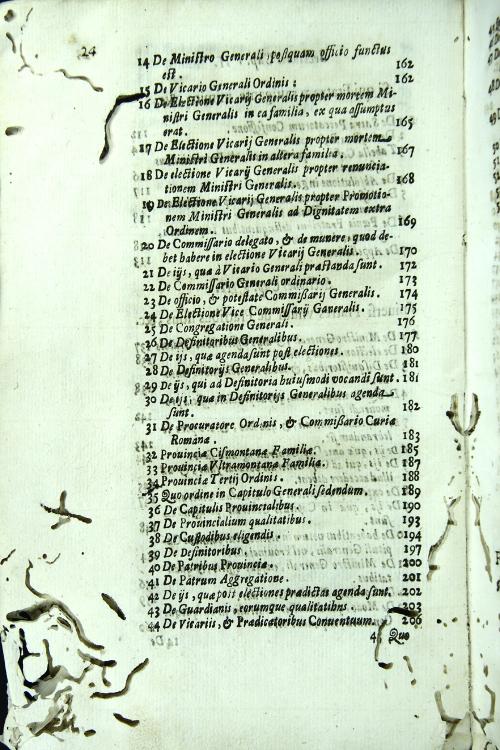 24
14 De Ministro Generali, postquam officio functus
est. 162
15 De Vicario Generali Ordinis: 162
16 De Electione Vicarij Generalis propter mortem Mi-
nistri Generalis in ea familia, ex qua assumptus
erat. 165
17 De Electione Vicarij Generalis propter mortem
Ministri Generalis in altera familia. 167
18 De electione Vicarij Generalis propter renuncia-
tionem Ministri Generalis. 168
19 De Electione Vicarij Generalis propter Promotio-
nem Ministri Generalis ad Dignitatem extra
Ordinem. 169
20 De Commissario delegato, & de munere, quod de-
bet habere in electione Vicarij Generalis. 170
21 De ijs, quæ à Vicario Generali præstanda sunt. 172
22 De Commissario Generali ordinario. 173
23 De officio, & potestate Commissarij Generalis. 174
24 De Electione Vice Commissarij Generalis. 175
25 De Congregatione Generali. 176
26 De Definitoribus Generalibus. 177
27 De ijs, quæ agenda sunt post electiones. 180
28 De Definitorijs Generalibus. 181
29 De ijs, qui ad Definitoria huiusmodi vocandi sunt. 181
30 De ijs, quæ in Definitorijs Generalibus agenda
sunt. 182
31 De Procuratore Ordinis, & Commissario Curiæ
Romanæ. 183
32 Prouinciæ Cismontanæ Familiæ. 185
33 Prouinciæ Vltramontanæ Familiæ. 187
34 Prouinciæ Tertij Ordinis. 188
35 Quo ordine in Capitulo Generali sedendum. 189
36 De Capitulis Prouincialibus. 190
37 De Prouincialium qualitatibus. 193
38 De Custodibus eligendis. 194
39 De Definitoribus. 197
40 De Patribus Prouinciæ. 200
41 De Patrum Aggregatione. 201
42 De ijs, quæ post electiones prædictas agenda sunt. 202
43 De Guardianis, eorumque qualitatibns. 203
44 De Vicariis, & Prædicatoribus Conuentuum. 206
45 Quo